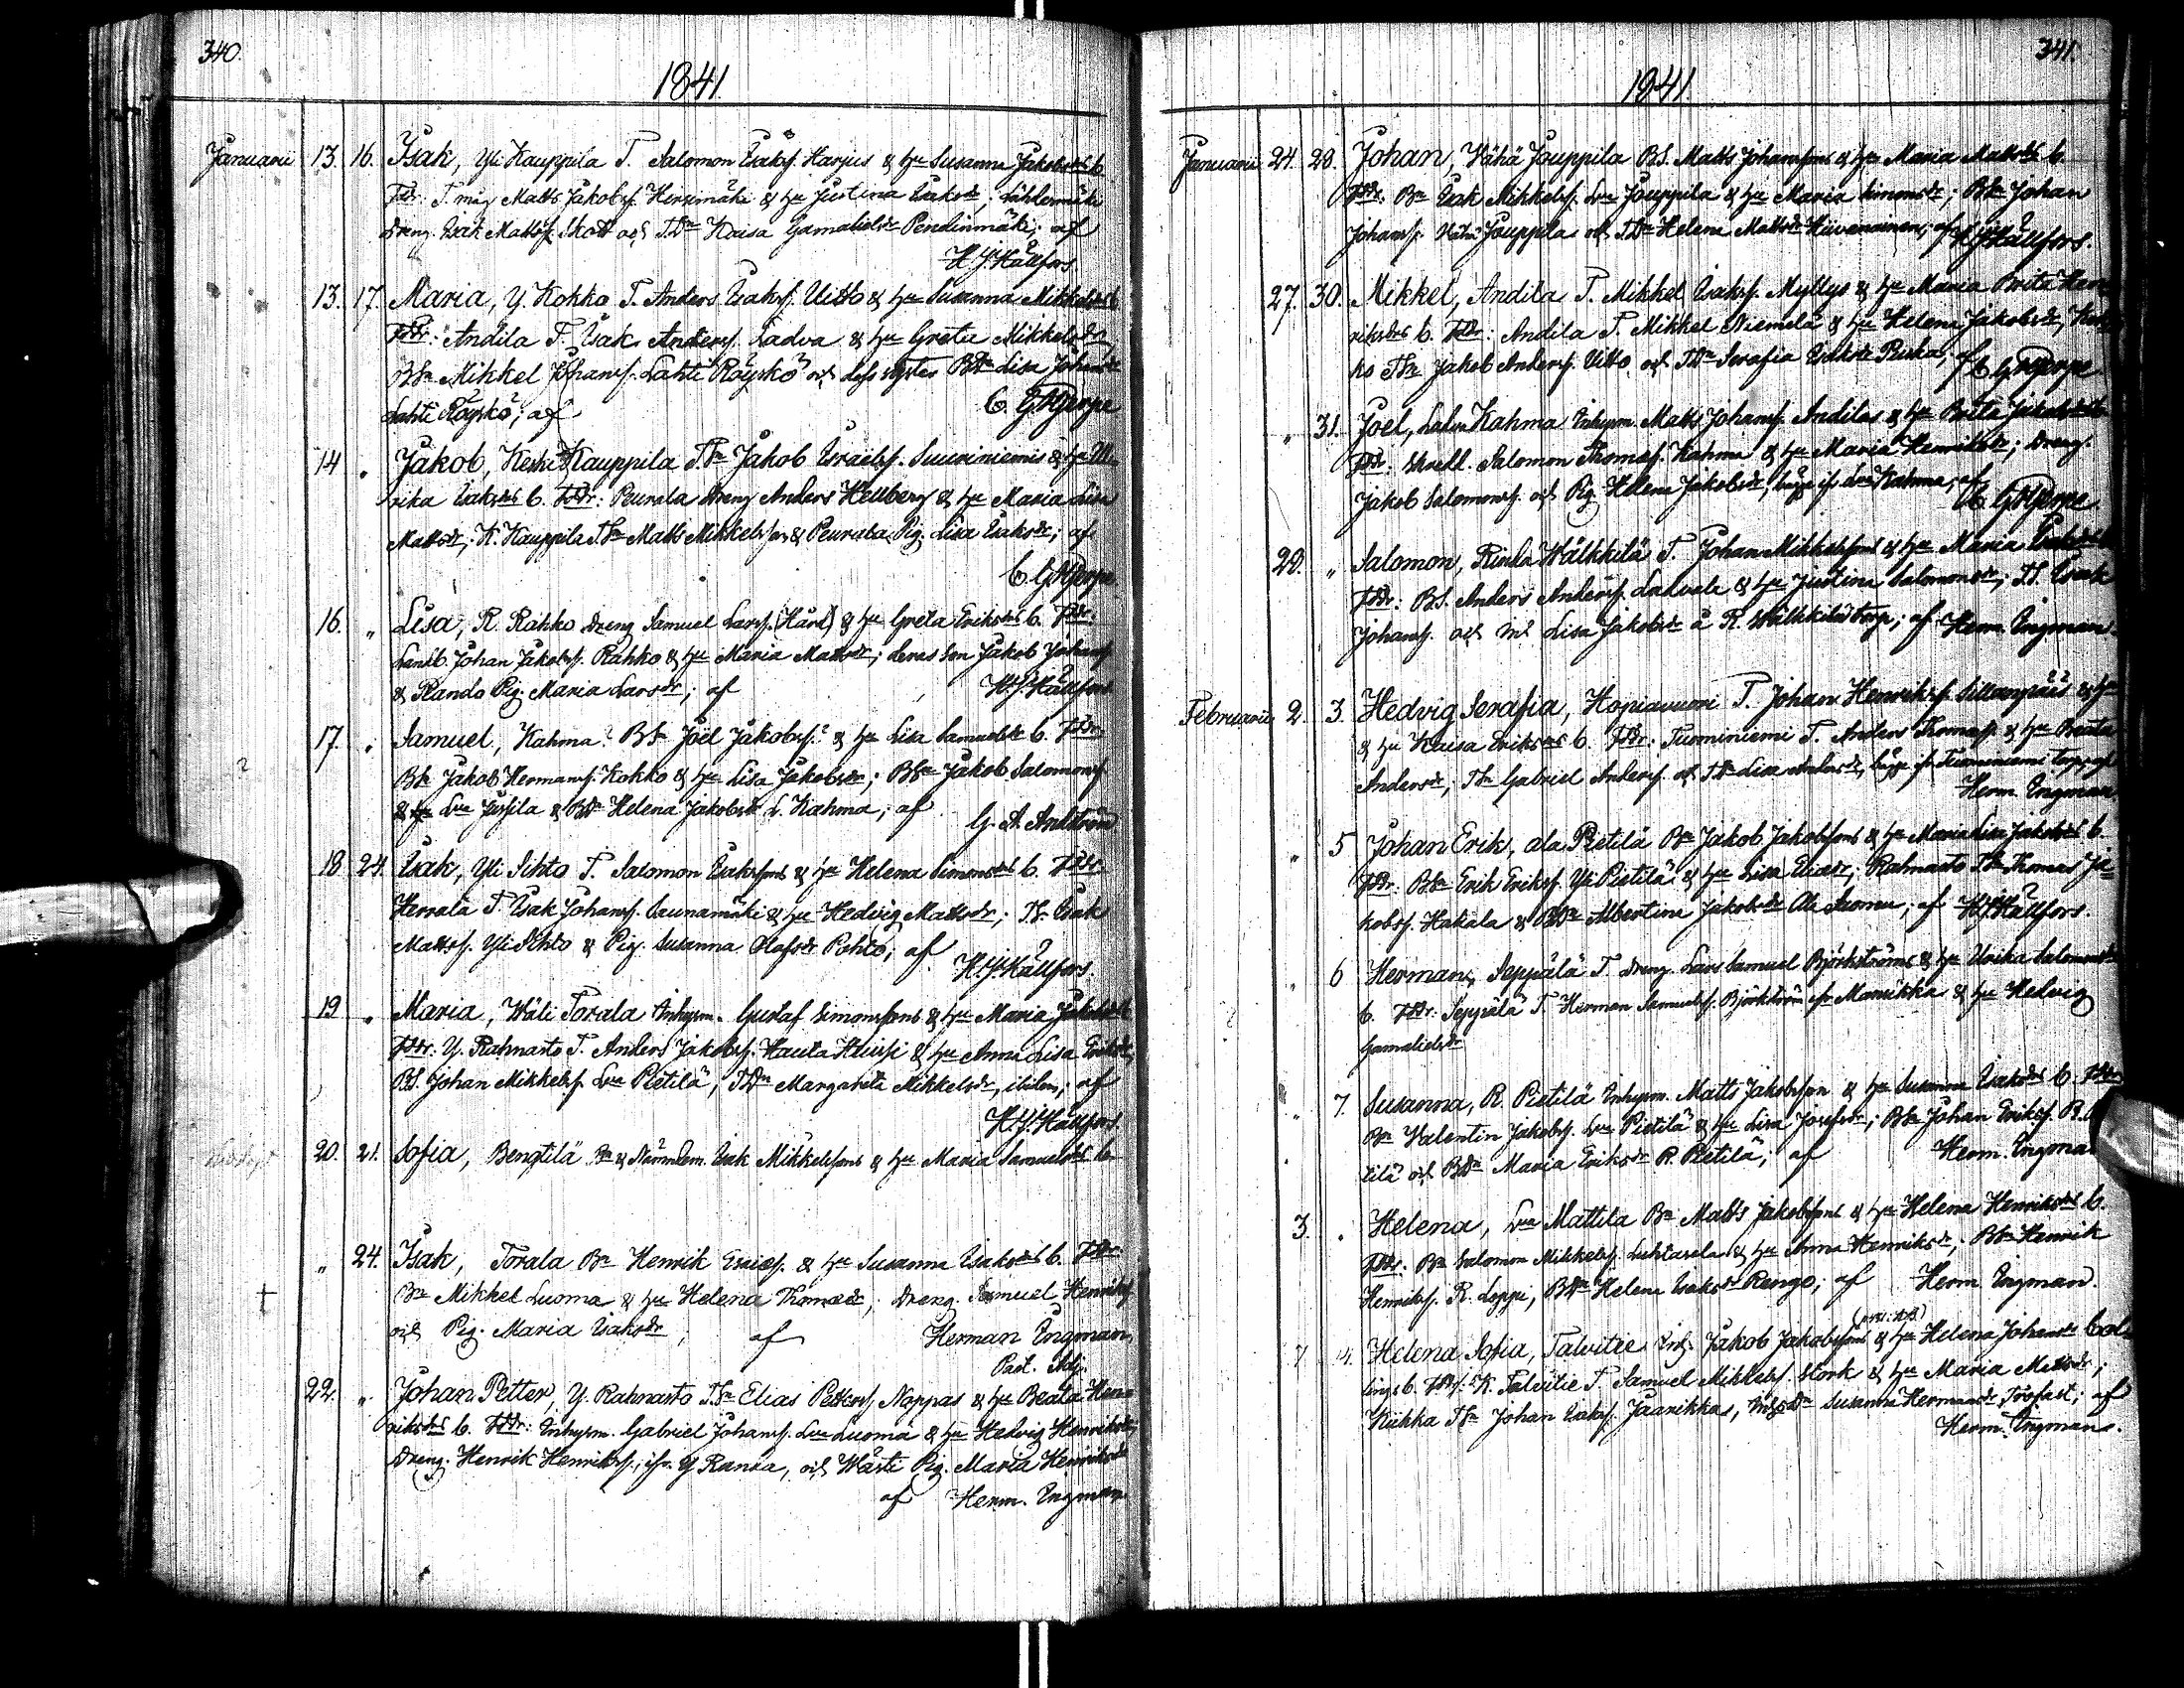 340.
1841.
Januarii 13. 16. Isak, Yli Kauppila T. Salomon Isaksf. Harjus & hu Susanna Jakobsdrs b.
Fddr: T. måg Matts Jakobsf. Hersimäki & hu Justina Isaksdr;
Dreng. Isak Mattsf. Skott och TDr Kaisa Gamalielsdr Pendinmäki; af
H. J. Hällfors.
13. 17. Maria, Y. Kohko T. Anders Isaksf. Uitto & hu Susanna Mikkelsdrs b.
Fddr: Andila T. Isak Andersf. Ladva & hu Greta Mikkelsdr
BSn Mikkel Johansf. Lahti Röyskö och dess syster BDr Lisa Johansdr
Lahti Röyskö; af C. G. Hjerpe
14 " Jakob, Keski Kauppila TSn Jakob Israelsf. Suuriniemis & hu Ul-
rika Isaksdrs b. Fddr: Peurala Dreng Anders Hellberg & hu Maria Lisa
Mattsdr; K. Kauppila TSn Matts Mikkelsson & Peurala Pig. Lisa Isaksdr; af
C. G. Hjerpe
16. " Lisa, R. Rahko Dreng Samuel Larsf. (Hård) & hu Greta Eriksdrs b. Fddr:
Landb. Johan Jakobsf. Rahko & hu Maria Mattsdr; deras son Jakob Johansf.
& Rando Pig. Maria Larsdr; af H. J. Hällfors
17. " Samuel, Kahma BSn Joël Jakobsf. & hu Lisa Samuelsdr b. Fddr:
Bn Jakob Hermansf. Kokko & hu Lisa Jakobsdr; BSn Jakob Salomonsf
& Lva Jussila & BDr Helena Jakobsdr L. Kahma; af
G. A.
18 24. Isak, Yli Sihto T. Salomon Isakssons & hu Helena Simonsdrs b. Fddr:
Herrala T. Isak Johansf. Saunamäki & hu Hedvig Mattsdr; TSn Isak
Mattsf. Yli Sihto & Pig. Susanna Olafsdr Pohto; af
H. J. Hällfors.
19 " Maria, Wäli Torala Inhysm. Gustaf Simonssons & hu Maria Jakobsdrs b
Fddr: Y. Rahnasto T. Anders Jakobsf. Hauta & hu Anna Lisa Eriksdr,
BS. Johan Mikkelsf. Lva Pietilä, TDr Margareta Mikkelsdr, ibidem; af
H. J. Hällfors.
20. 21. Sofia, Bengtilä Bn & Nämndem. Isak Mikkelssons & hu Maria Samuelsdrs b.
" 24. Isak, Torala Bn Henrik Esaiæf. & hu Susanna Isaksdrs b. Fddr:
Bn Mikkel Luoma & hu Helena Thomædr; Dreng. Samuel Henriksf
och Pig. Maria Isaksdr; af Herman Engman,
Past. Adj.
22. " Johan Petter, Y. Rahnasto TSn Elias Pettersf. Nappas & hu Beata Hen-
riksdrs b. Fddr: Inhysm. Gabriel Johansf. Lva Luoma & hu Hedvig Henriksdr;
Dreng. Henrik Henriksf., ifr. Y Ranna, och Wästi Pig. Maria Henriksdr
af Herm. Engman
341.
1841.
Januarii 24. 28. Johan, Wähä Jouppila BS. Matts Johanssons & hu Maria Mattsdr b.
Fddr: Bn Isak Mikkelsf. Lva Jouppila & hu Maria Simonsdr; BSn Johan
Johansf. Wähä Jouppila och TDr Helena Mattsdr; af H J Hällfors.
27. 30. Mikkel, Andila T. Mikkel Isaksf. Myllys & hu Maria Brita Hen-
riksdrs b. Fddr: Andila T. Mikkel Niemelä & hu Helena Jakobsdr, Kok-
ko TSn Jakob Andersf. Uitto, och TDr Serafia Isaksdr Ruka, af C. G. Hjerpe
" 31. Joel, Lahn Kahma Inhysm. Matts Johansf. Andilas & hu Brita Jakobsdrs b.
Fddr: Skredd. Salomon Thomæf. Kahma & hu Maria Henriksdr; Dreng.
Jakob Salomonsf. och Pig. Helena Jakobsdr, bägge ifr. Lva Kahma; af
C. G. Hjerpe
28. " Salomon, Rinta Wälkkilä T. Johan Mikkelssons & hu Maria
Fddr: BS. Anders Andersf. Lahvele & hu Justina Salomonsdr; TS. Isak
Johansf. och Lisa Jakobsdr å R. Wälkkilä torp; af Herm. Engman.
Februarii 2. 3. Hedvig Serafia, Hopiavuori T. Johan Henriksf. Sillanpääs
& hu Kaisa Eriksdrs b. Fddr: Tuominiemi T. Anders Thomæf. & hu Beata
Andersdr; TSn Gabriel Andersf. och TDr Lisa Andersdr, bägge ifr Tuominiemi torp; af
Herm. Engman.
" 5 Johan Erik, ala Pietilä Bn Jakob Jakobssons & hu Maria Lisa Jakobsdrs b.
Fddr: BSn Erik Eriksf. Yli Pietilä & hu Lisa Eliædr; Rahnasto TSn Thomas Ja-
kobsf. Hakala & BDr Albertina Jakobsdr Ala Luoma; af H. J. Hällfors.
" 6 Herman, Seppälä T. Dreng. Lars Samuel Björkströms & hu Ulrika Salomonsdrs
b. Fddr: Seppälä T. Herman Samuelsf. Björkström ifr Mannikka & hu Hedvig
Gamalielsdr
" 7. Susanna, R. Pietilä Inhysm. Matts Jakobsson & hu Susanna Isaksdrs b. Fddr:
Bn Valentin Jakobsf. Lva Pietilä & hu Lisa Josefsdr; BSn Johan Eriksf. R.
tilä och BDr Maria Eriksdr R. Pietilä; af Herm. Engman
3. " Helena, Lva Mattila Bn Matts Jakobssons & hu Helena Henriksdrs b.
Fddr: Bn Salomon Mikkelsf. Luhtasela & hu Anna Henriksdr; BSn Henrik
Henriksf. R. Loppi, BDr Helena Isaksdr Rengo; af Herm Engman.
7 14. Helena Sofia, Talvitie Jakob Jakobssons & hu Helena Johansdr Col-
lings b. Fddr: K. Talvitie T. Samuel Mikkelsf. Stork & hu Maria Mattsdr;
Kiikka TSn Johan Isaksf. Jaarikkas, Susanna Hermansdr Trofast; af
Herm. Engman.